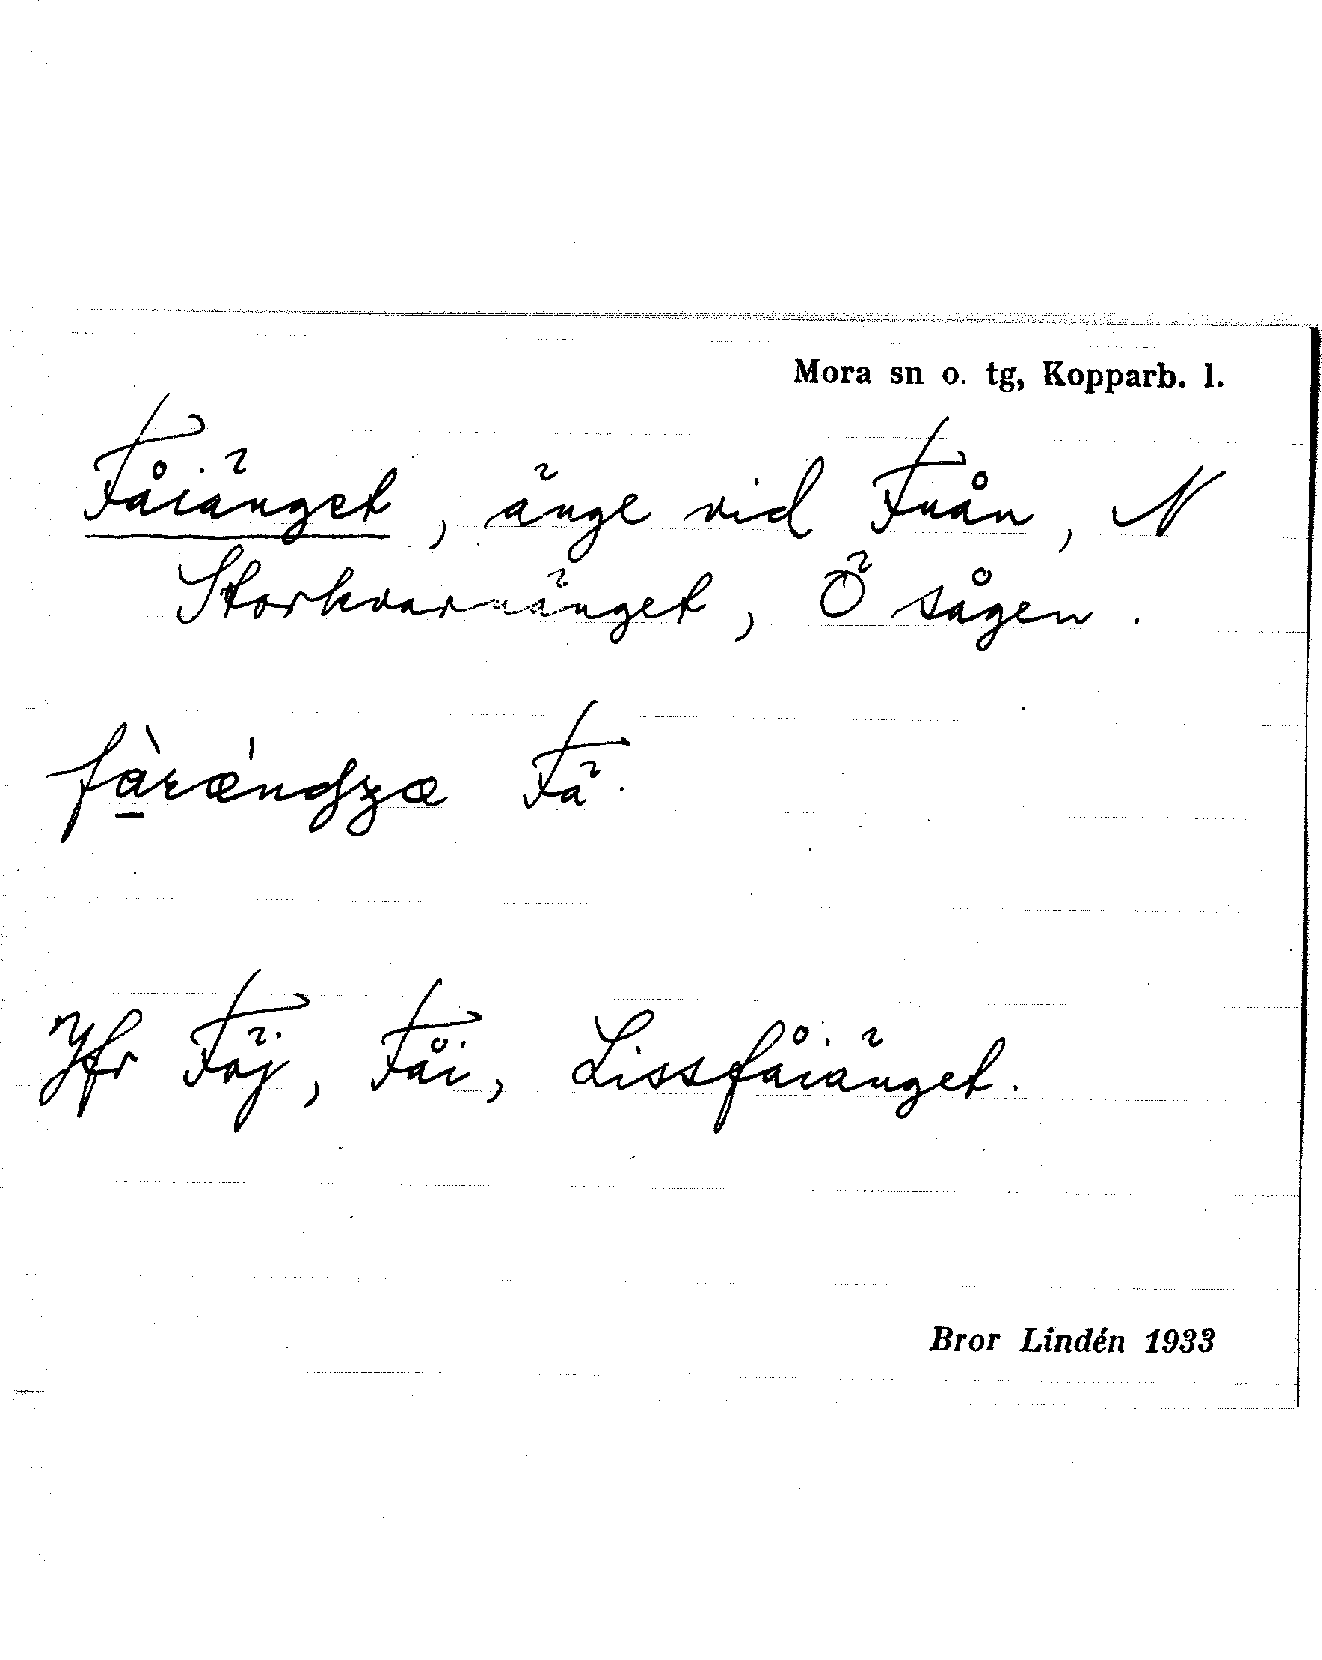 Mora sn o. tg, Kopparb. l.
Fåiänget, änge vid Fuån, N
Storkvarnänget, Ö sågen.
Fä.
Jfr Föj, Fåi, Lissfåiänget.
Bror Lindén 1933